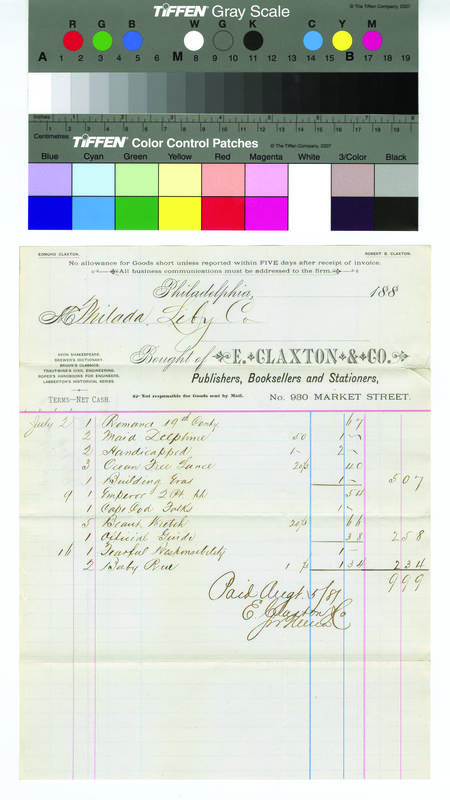 TIFFEN Gray Scale
© The Tiffen Company, 2007
R G B W G K C Y M
A 1 2 3 4 5 6 M 8 9 10 11 12 13 14 15 B 17 18 19
Inches 1 2 3 4 5 6 7 8
Centimetres 1 2 3 4 5 6 7 8 9 10 11 12 13 14 15 16 17 18 19
TIFFEN Color Control Patches
© The Tiffen Company, 2007
Blue Cyan Green Yellow Red Magenta White 3/Color Black
EDMUND CLAXTON. ROBERT B. CLAXTON.
No allowance for Goods short unless reported within FIVE days after receipt of invoice.
All business communications must be addressed to the firm.
Philadelphia, 188
M Philada. Liby Co
Bought of E. CLAXTON & CO.
AVON SHAKESPEARE.
BREWER'S DICTIONARY.
BOHN'S CLASSICS.
TRAUTWINE'S CIVIL ENGINEERING.
ROPER'S HANDBOOKS FOR ENGINEERS.
LABBERTON'S HISTORICAL SERIES.
Publishers, Booksellers and Stationers,
TERMS—NET CASH.
Not responsible for Goods sent by Mail.
No. 930 MARKET STREET.
July 2 1 Romance 19th Centy 67
2 Maid 50 1 -
2 Handicapped 1 - 2 -
3 Ocean Free Lance 20/3 40
1 Building 1 - 5 07
9 1 Emperor 2 Pt ph 54
1 Cape Cod Folks 1 -
5 Beaut Wretch 20/3 66
1 Official Guide 38 2 58
16 1 Fearful Responsibility 1 -
2 Baby Rue 1 34 2 34
9 99
Paid Augt 5/81
E. Claxton & Co